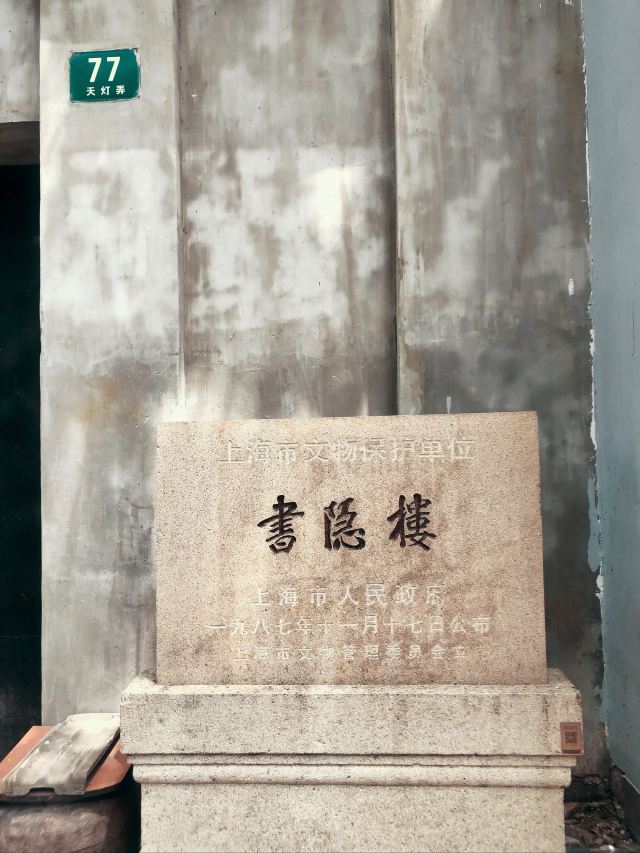 77
天灯弄
上海市文物保护单位
書隐樓
上海市人民政府
一九八七年十一月十七日公布
上海市文物管理委员会立